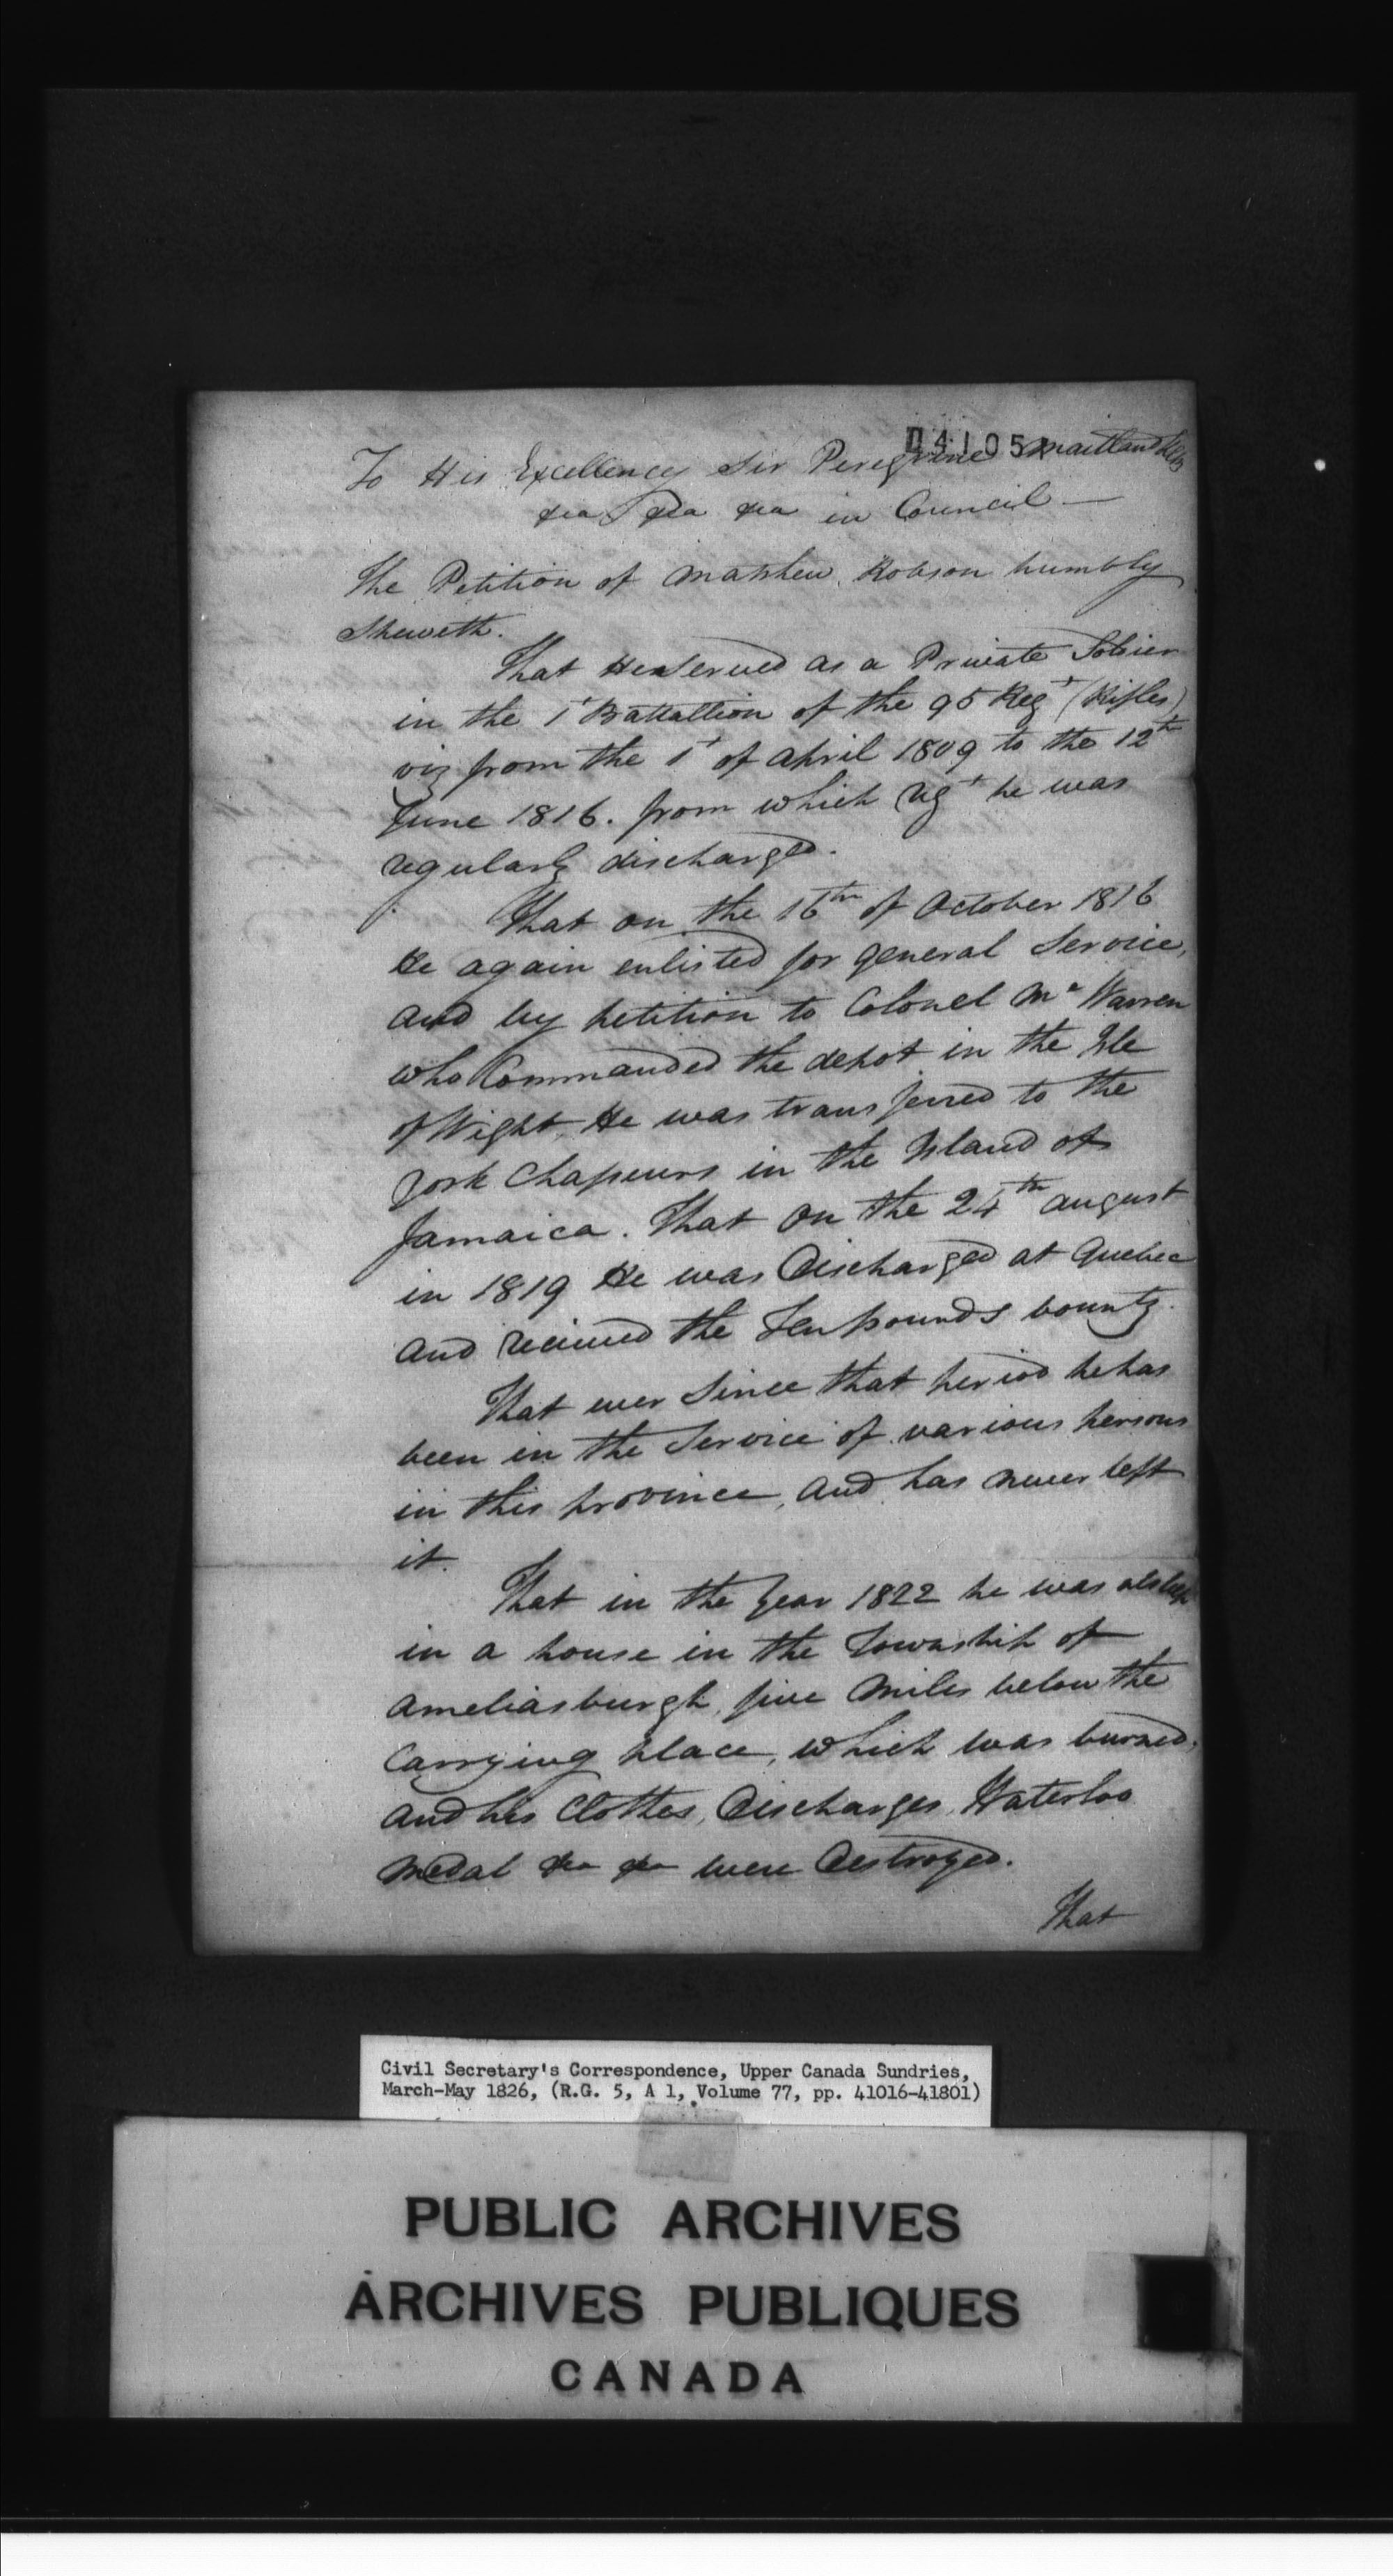 04105
To His Excellency Sir Peregrine Maitland KCB
&ca &ca &ca in Council —
The Petition of Matthew Robson humbly
Sheweth.
That He Served as a Private Soldier
in the 1t Battallion of the 95 Regt (Rifles)
viz from the 1t of April 1809 to the 12th
June 1816. from which regt he was
regularly discharged.
That on the 16th of October 1816
He again enlisted for general Service,
and by petition to Colonel Mc Warren
who Commanded the depot in the Isle
of Wight He was transferred to the
York Chasseurs in the Island of
Jamaica. That on the 24th august
in 1819 He was Discharged at Quebec
and received the Ten pounds bounty.
That ever Since that period he has
been in the Service of various persons
in this province, and has never left
it.
That in the Year 1822 he was asleep
in a house in the Township of
Ameliasburgh, five Miles below the
Carrying place, which was burned,
and his Clothes, Discharges, Waterloo
Medal &ca &ca were Destroyed.
That
Civil Secretary's Correspondence, Upper Canada Sundries,
March-May 1826, (R.G. 5, A 1, Volume 77, pp. 41016-41801)
PUBLIC ARCHIVES
ARCHIVES PUBLIQUES
CANADA